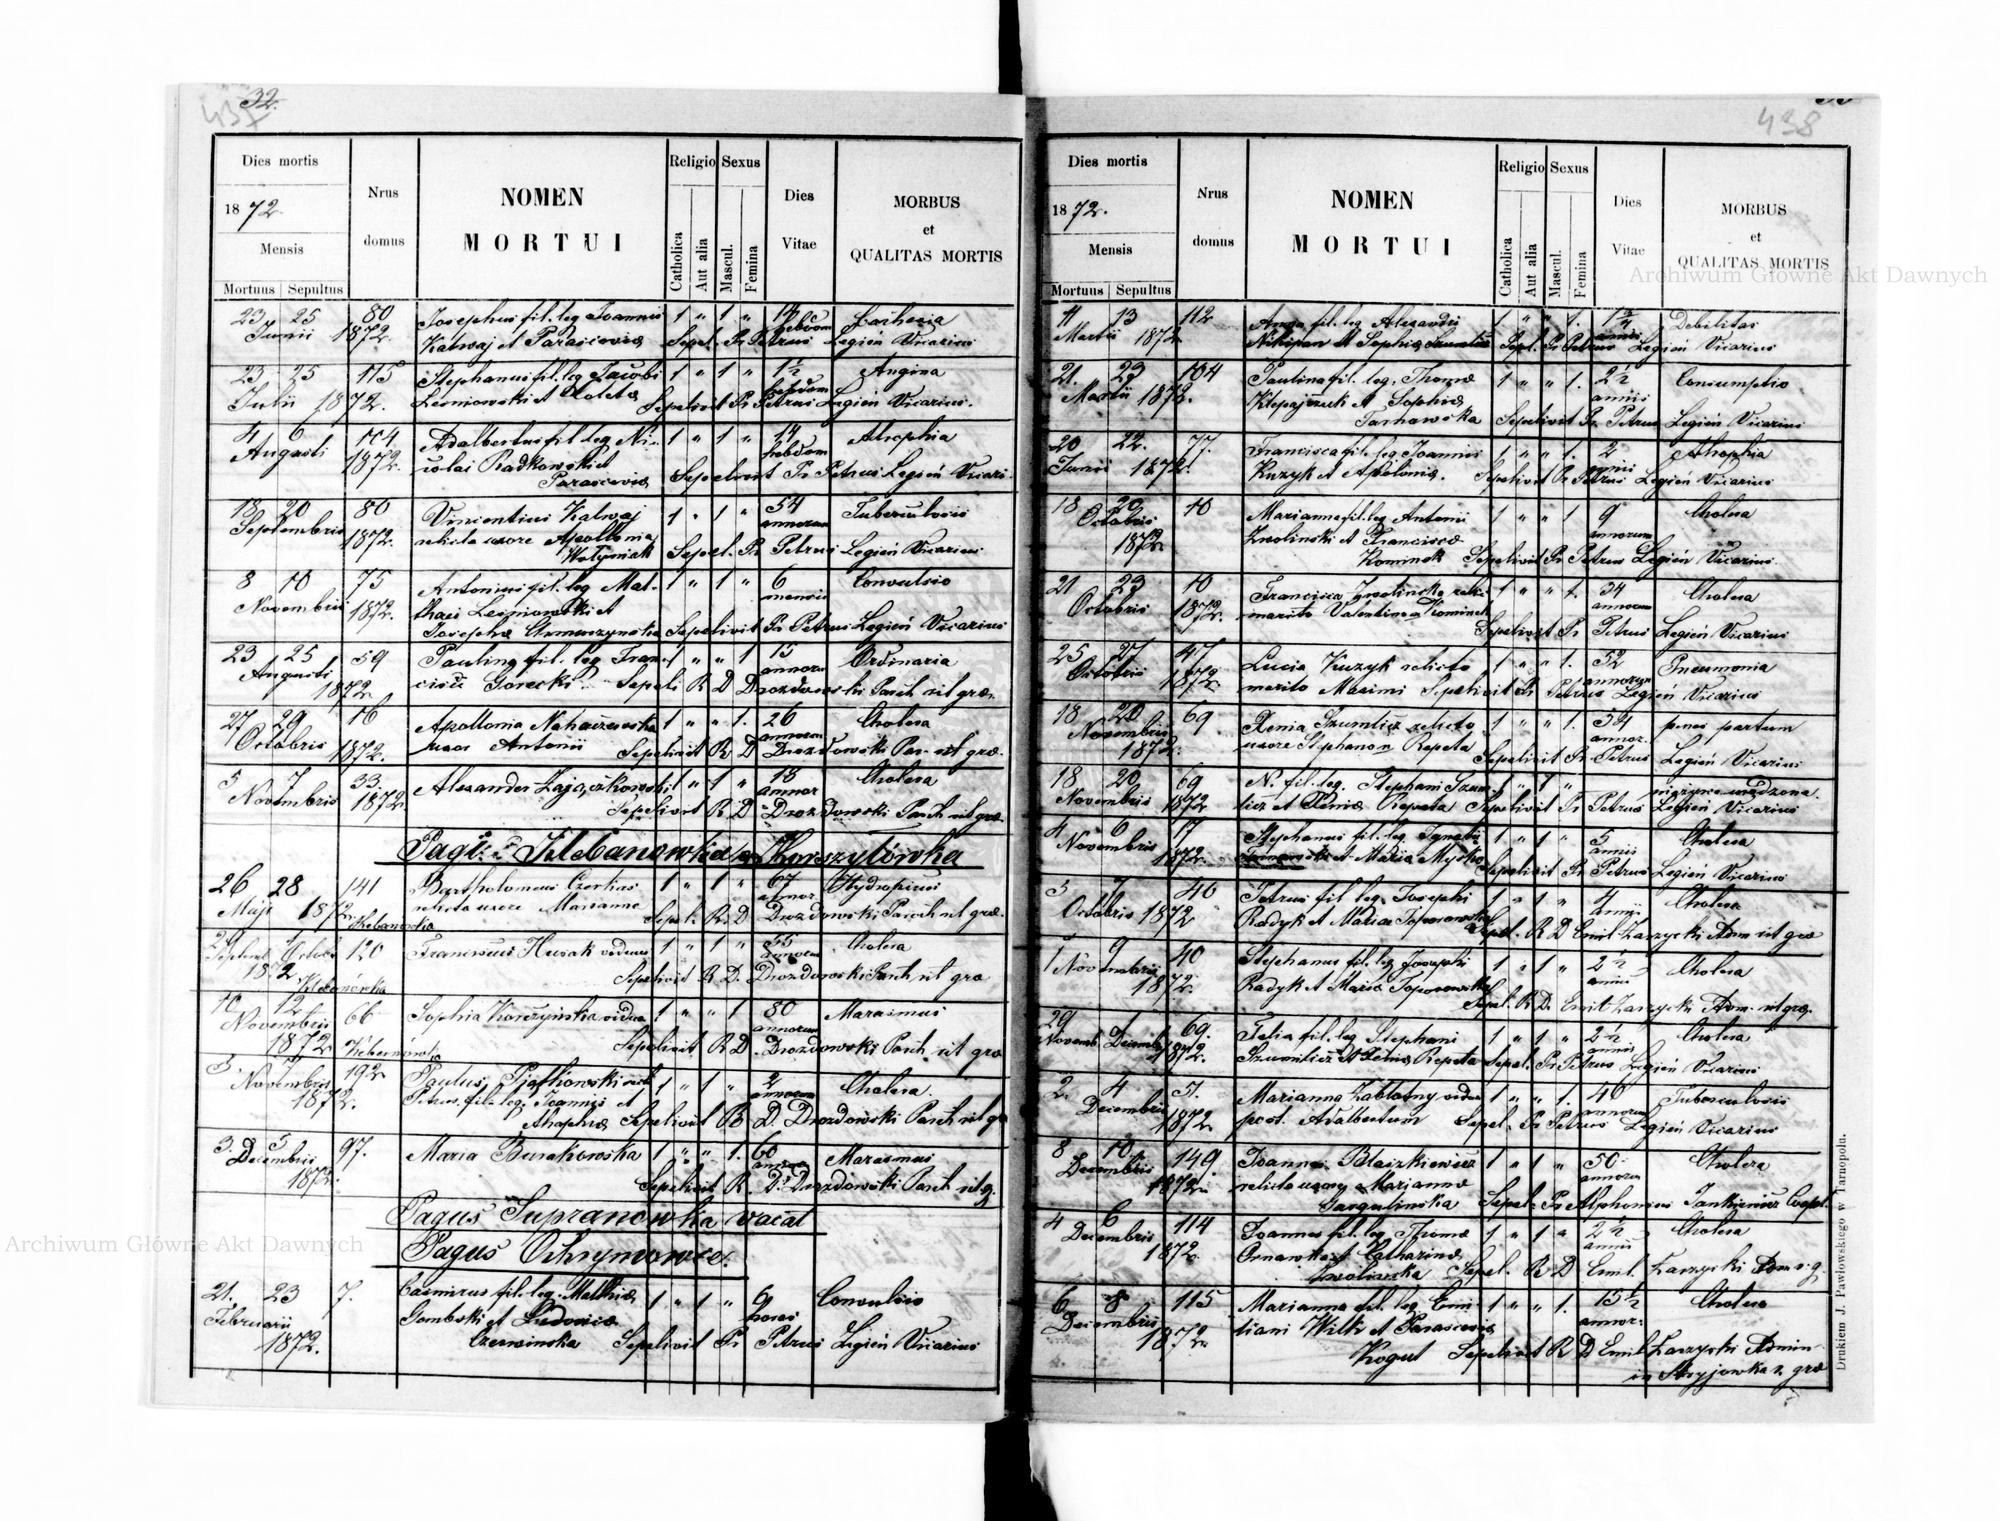 32.
437
Dies mortis
1872.
Mensis
Mortuus Sepultus
Nrus
domus
NOMEN
MORTUI
Religio
Catholica
Aut alia
Sexus
Mascul.
Femina
Dies
Vitae
MORBUS
et
QUALITAS MORTIS
23 25 80 Josephus fil. leg. Joannis 1 " 1 " 14
Junii 1872. Kalwaj et Parascevia Sepel. Pr Petrus Legień Vicarius
23 25 115 Stephanus fil. leg. Jacobi 1 " 1 " 1½ Angina
Julii 1872. Leśniowski et Sepelivit Pr Petrus Legień Vicarius.
4 6 104 Adalbertus fil. leg. Ni- 1 " 1 " 14 hebdom Atrophia
Augusti 1872. colai Radkowski et
Parascevia Sepelivit Pr Petrus Legień Vicari.
18 20 80 Vincentius Kalwaj 1 " 1 " 54 annorum Tuberculosis
Septembris 1872. relicta uxore Apollonia
Wołyniak Sepel. Pr Petrus Legień Vicarius
8 10 75 Antonius fil. leg. Mat- 1 " 1 " 6 mensis Convulsio
Novembris 1872. thaei Leśniowski et
Josepha Sepelivit Pr Petrus Legień Vicarius
23 25 59 Paulina fil. leg. Fran- 1 " " 1 15 annor. Ordinaria
Augusti 1872 cisci Gorecki Sepeli R D Drozdowski Paroch rit græ.
27 29 16 Apollonia Nahaczewska 1 " " 1. 26 annorum Cholera
Octobris 1872. uxor Antonii Sepelivit R D Drozdowski Par. rit græ.
5 7 33. Alexander Zajączkowski 1 " 1 " 18 annor Cholera
Novembris 1872. Sepelivit R D Drozdowski Paroch rit græ.
Pagi: Klebanowka Worszylówka
26 28 141 Bartholomeus Czerkas 1 " 1 " 67 annor Hydropisis
Maji 1872 Klebanowka relicta uxore Marianna Sepel. R. D. Drozdowski Paroch rit græ.
Octobr 120 Franciscus Husak viduus 1 " 1 " 55 Cholera
1872 Klebanówka Sepelivit R D. Drozdowski Paroch rit græ
10 12 66 Sophia Korczyńska vidua 1 " " 1 80 annorum Marasmus
Novembris 1872 Sepelivit R D. Drozdowski Paroch rit græ
3. 5 192 Paulus Piątkowski 1 " 1 " 2 annorum Cholera.
Novembris 1872. Petrus fil. leg. Joannis et
Sepelivit R D. Drozdowski Paroch rit gr
3. 5 97. Maria Burakowska 1 " " 1. 60 annor Marasmus
Decembris 1872. Sepelivit R. D. Drozdowski Paroch rit g.
Pagus Supranowka vacat
Pagus Ochrymowce.
21. 23 7. Casimirus fil. leg. Mathiæ 1 " 1 " 9 horas Convulsio
Februarii 1872. Gembski et Ludovica
Czerwinska Sepelivit Pr Petrus Legień Vicarius
438
Dies mortis
1872.
Mensis
Mortuus Sepultus
Nrus
domus
NOMEN
MORTUI
Religio
Catholica
Aut alia
Sexus
Mascul.
Femina
Dies
Vitae
MORBUS
et
QUALITAS MORTIS
11 13 112 Anna fil. leg. Alexandri 1 " " 1. Debilitas
Martii 1872 et Sophia Sepel. Pr Petrus Legień Vicarius
21. 23 104 Paulina fil. leg. Thomæ 1 " " 1. 2½ annis Consumptio
Martii 1872. Klepajczuk et Sophia
Tarnawska Sepelivit Pr Petrus Legień Vicarius
20 22. 77. Francisca fil. leg. Joannis 1 " " 1. 2 annis Atrophia
Junii 1872. Kuzyk et Apolonia. Sepelivit Pr Petrus Legień Vicarius
18 20 10 Marianna fil. leg. Antonii 1 " " 1 9 annorum Cholera
Octobris 1872 Zwolinski et Francisca
Kominek Sepelivit Pr Petrus Legień Vicarius.
21 23 10 Francisca Zwolinska relic. 1 " " 1. 34 annorum Cholera
Octobris 1872. marito Valentino Kominek
Sepelivit Pr Petrus Legień Vicarius
25 27 47 Lucia Kuzyk relicto 1 " " 1. 52 annorum Pneumonia
Octobris 1872. marito Maximi Sepelivit Pr Petrus Legień Vicarius
18 20 69 Xenia Szumlicz relicto 1 " " 1. 34 annor. penes partum
Novembris 1872. uxore Stephano Repeta Sepelivit Pr Petrus Legień Vicarius
18 20 69 N. fil. leg. Stephani Szum- 1 " 1 "
Novembris 1872 licz et Xenia Repeta Sepelivit Pr Petrus Legień Vicarius
4 6 17 Stephanus fil. leg. Ignatii 1 " 1 " 5 annis Cholera
Novembris 1872. et Maria Sepelivit Pr Petrus Legień Vicarius
5 7 40 Petrus fil. leg. Josephi 1 " 1 " 4 annis Cholera
Octobris 1872 Radyk et Maria Toporowska Sepel. R D Emil Zarzycki Adm rit græ
7 9 40 Stephanus fil. leg. Josephi 1 " 1 " 2½ annis Cholera
Novembris 1872. Radyk et Maria Toporowska Sepel. R D. Emil Zarzycki Adm. rit græ.
29 1 69. fil. leg. Stephani 1 " 1 " 2½ annis Cholera
Novemb. Decemb. 1872. Szumlicz et Xenia Repeta Sepel. Pr Petrus Legień Vicarius
2. 4 51. Marianna Zabłotny vidua 1 " " 1. 40 annorum Tuberculosis
Decembris 1872. post. Adalbertum Sepel. Pr Petrus Legień Vicarius
8 10. 149. Joannes Błaszkiewicz 1 " 1 " 50 annorum Cholera
Decembris 1872. relicta uxore Marianna
Sargulinska Sepel. Pr Alphonsus Jankiewicz Coop.
4 6 114 Joannes fil. leg. Thomæ 1 " 1 " 2½ annis Cholera
Decembris 1872. et Catharina
Zwolinska Sepel. R D Emil. Zarzycki Adm r. g.
6 8 115 Marianna fil. leg. Emi- 1 " " 1. 15½ annor. Cholera
Decembris 1872. liani Wilk et Parascevia
Kogut Sepelivit R D Emil Zarzycki Admin-
in Stryjowka r. græ
Drukiem J. Pawłowskiego w Tarnopolu.
Archiwum Główne Akt Dawnych
Archiwum Główne Akt Dawnych